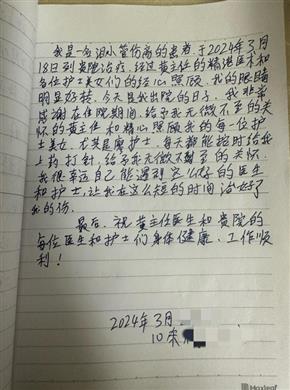 我是一名泪小管伤痛的患者,于2024年3月
18日到贵院治疗,经过黄主任的精湛医术和
各位护士美女们的经心照顾,我的眼睛
明显好转,今天是我出院的日子,我非常
感谢在住院期间,给予我无微不至的关
怀的黄主任和精心照顾我的每一位护
士美女,尤其是廖护士,每天都能按时给我
上药打针,给予我无微不至的关怀。
我很幸运自己能遇到这么好的医生
和护士,让我在这么短的时间治好了
我的伤。
最后,祝黄主任医生和贵院的
每位医生和护士们身体健康,工作顺
利!
2024年3月
10床
Maxleaf